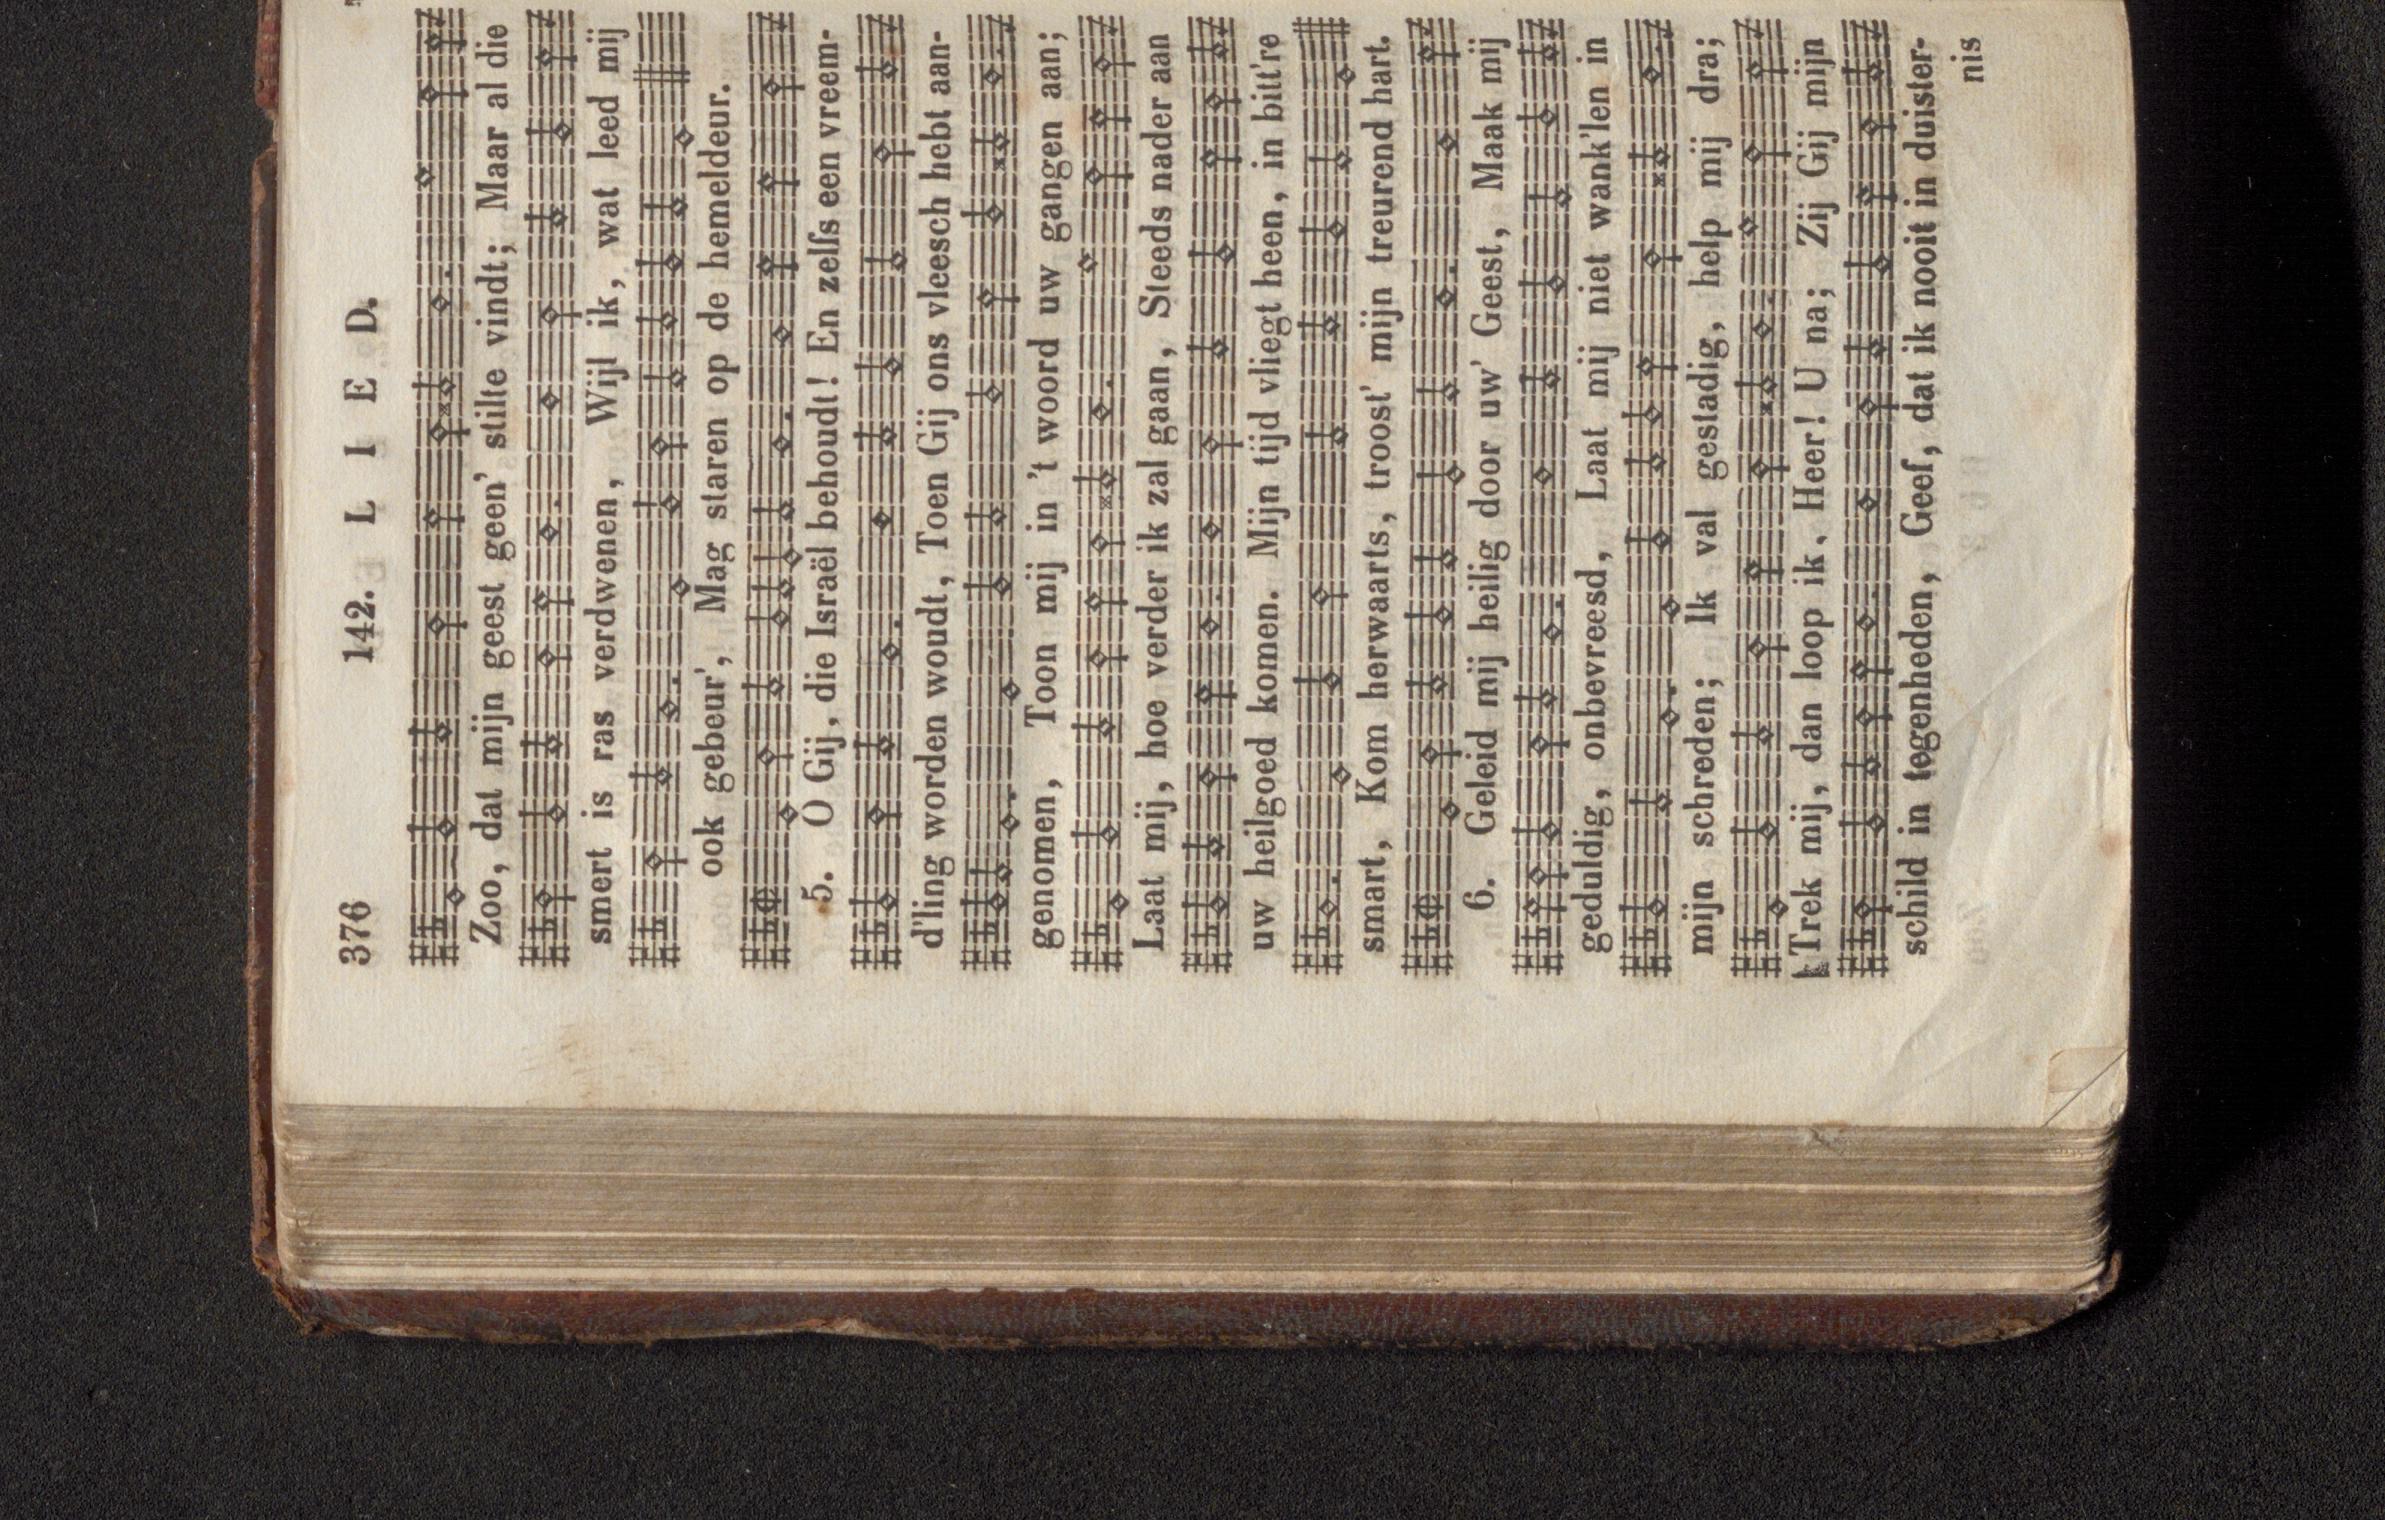 376 142. L I E D.
Zoo, dat mijn geest geen' stilte vindt; Maar al die
smert is ras verdwenen, Wijl ik, wat leed mij
ook gebeur', Mag staren op de hemeldeur.
5. O Gij, die Israël behoudt! En zelfs een vreem-
d'ling worden woudt, Toen Gij ons vleesch hebt aan-
genomen, Toon mij in 't woord uw gangen aan;
Laat mij, hoe verder ik zal gaan, Steeds nader aan
uw heilgoed komen. Mijn tijd vliegt heen, in bitt're
smart, Kom herwaarts, troost' mijn treurend hart.
6. Geleid mij heilig door uw' Geest, Maak mij
geduldig, onbevreesd, Laat mij niet wank'len in
mijn schreden; Ik val gestadig, help mij dra;
Trek mij, dan loop ik, Heer! U na; Zij Gij mijn
schild in tegenheden, Geef, dat ik nooit in duister-
nis